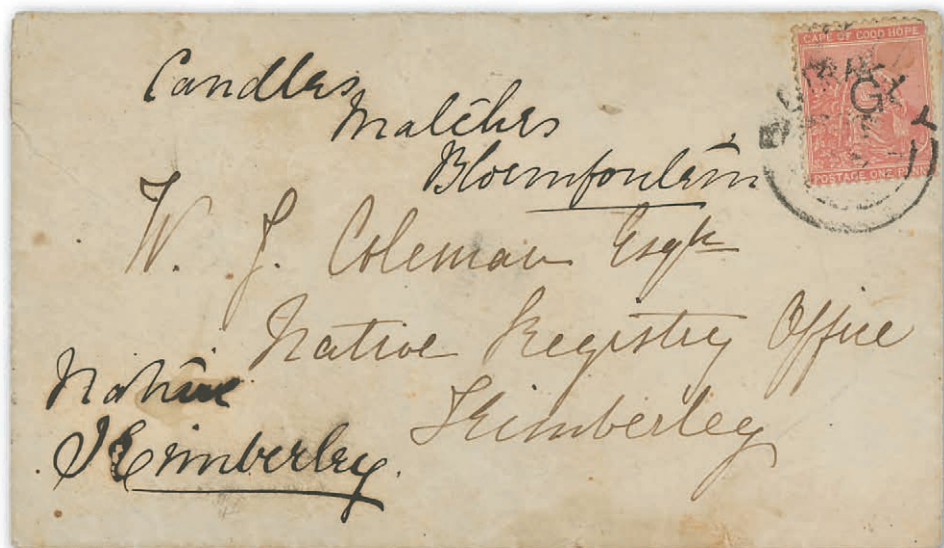 CAPE OF GOOD HOPE
G
POSTAGE ONE PENN
Candles
Matches
Bloemfontein
W. J. Coleman Esqre
Native Registry Office
Kimberley
Native
Kimberley.